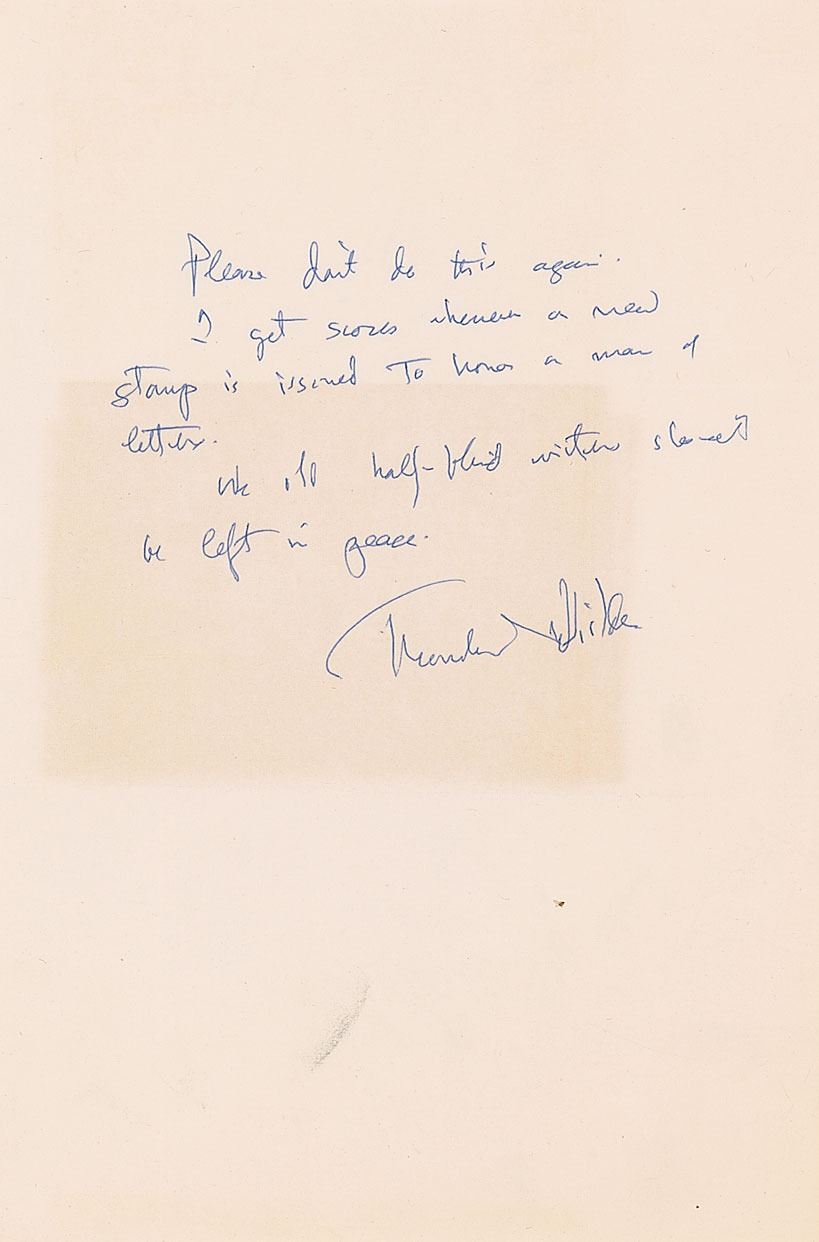 Please don't do this again.
I get scores whenever a new
stamp is issued to honor a man of
letters.
We old half-blind writers should
be left in peace.
Thornton Wilder